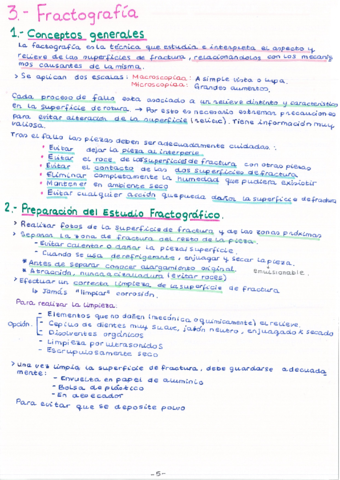 3.- Fractografía
1.- Conceptos generales
La factografía es la técnica que estudia e interpreta el aspecto y
relieve de las superficies de fractura, relacionándolos con los mecanis
mos causantes de la misma.
> Se aplican dos escalas: Macroscópica: A simple vista o lupa.
Microscópica: Grandes aumentos.
Cada proceso de fallo está asociado a un relieve distinto y característico
en la superficie de rotura → Por esto es necesario extremar precauciones
para evitar alteración de la superficie (relieve). Tiene información muy
valiosa.
Tras el fallo las piezas deben ser adecuadamente cuidadas:
• Evitar dejar la pieza al intemperie.
• Evitar el roce de la superficie de fractura con otras piezas
• Evitar el contacto de las dos superficies de fractura
• Eliminar completamente la humedad que pudiera existir
• Mantener en ambiente seco
• Evitar cualquier acción que pueda dañar la superficie de fractura
2.- Preparación del Estudio Fractográfico.
> Realizar fotos de la superficie de fractura y de las zonas próximas
> Separar la zona de fractura del resto de la pieza.
- Evitar calentar o dañar la pieza/superficie.
- Cuando se usa refrigerante, enjuagar y secar la pieza.
* Antes de separar conocer alargamiento original.
* A tracción, nunca a cizalladura (evitar roces)
> Efectuar un correcta limpieza de la superficie de fractura
↳ Jamás "limpiar" corrosión.
Para realizar la limpieza:
- Elementos que no dañen (mecánica o químicamente) el relieve.
Opción: - Cepillo de dientes muy suave, jabón neutro, enjuagado y secado
- Disolventes orgánicos
- Limpieza por ultrasonidos
- Escrupulosamente seco
> Una vez limpia la superficie de fractura, debe guardarse adecuada
mente:
- Envuelta en papel de aluminio
- Bolsa de plástico
- En desecador
Para evitar que se deposite polvo
-5-